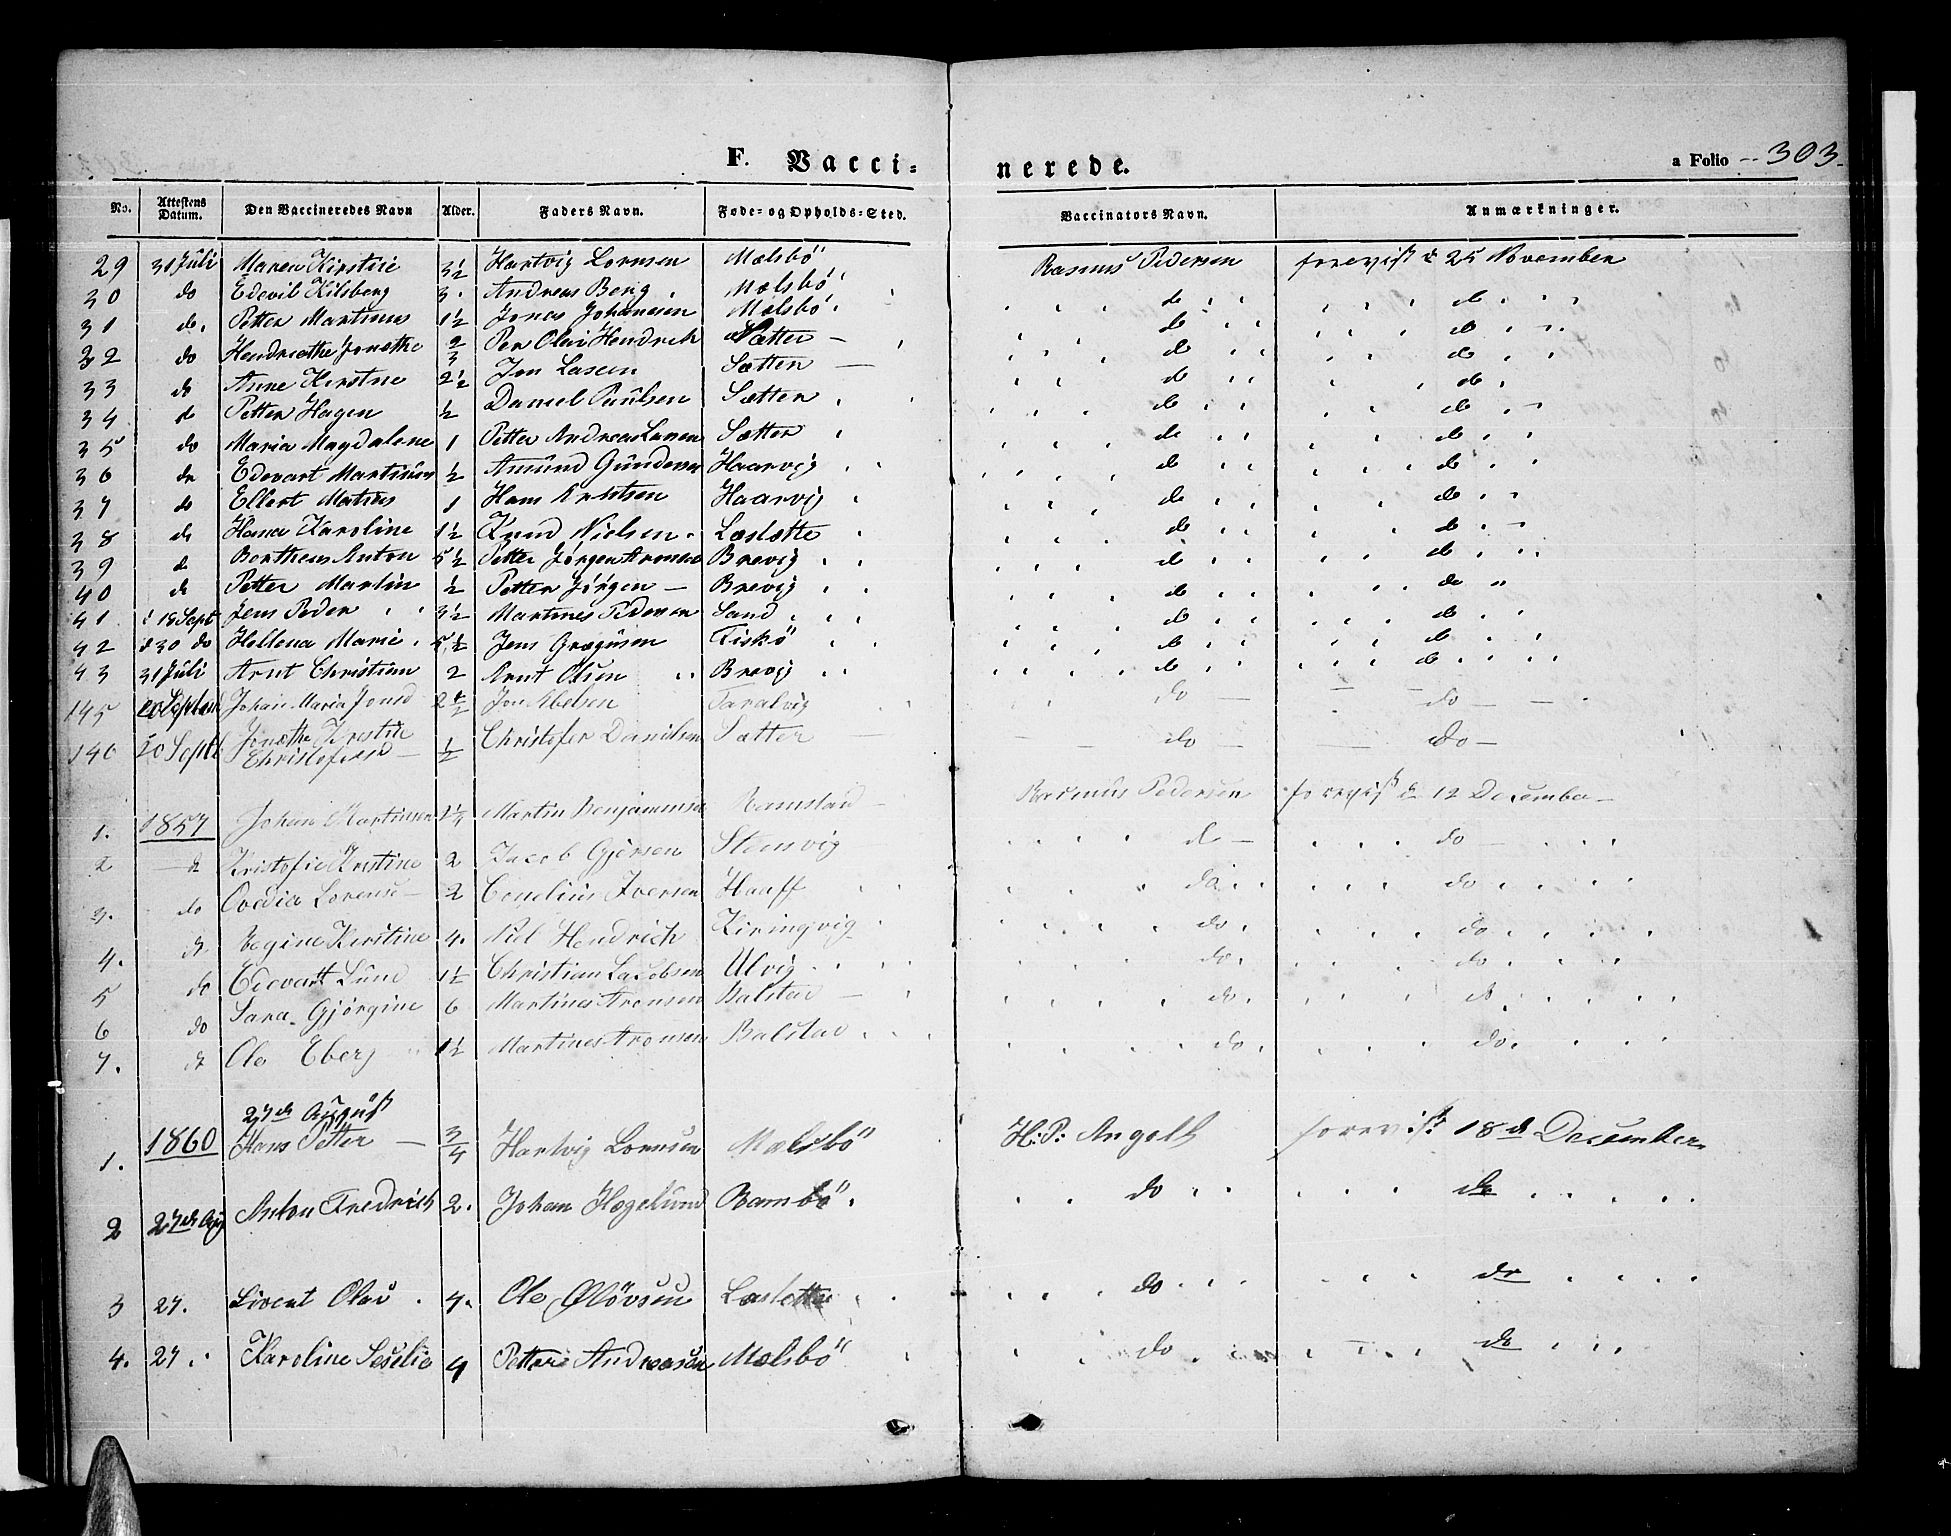 F. Vacci- nerede. a Folio 303.
No. Attestens Datum. Den Vaccineredes Navn Alder. Faders Navn. Føde- og Opholds-Sted. Vaccinators Navn. Anmærkninger.
29 31 Juli Maren Kirstie 3½ Hartvig Lornsen Mælsbö Rasmus Pedersen forevist d 25 November
30 do Edevil Kilsberg 3 Andreas Berg Mælsbö do do
31 do. Petter Martinus 1½ Jonas Johansen Mælsbö do do
32 do Hendriethe Jonethe 2/3 Per Olai Hendrich Sætter do do
33 do Anne Kirstne 2½ Jon Lasen Sætter do do
34 do Petter Hagen ½ Daniel Paulsen Sætter do do
35 do Maria Magdalene 1 Petter Andreas Larsen Sætter do do
36 do Edevart Martinus ½ Amund Gundersen Haarvig do do
37 do Ellert Matius 1 Hans Kristsen Haarvig do do
38 do Hana Karoline 1½ Knud Nielsen Læslætte do do
39 do Berthens Anton 5½ Petter Jørgen Aronsen Brevig do do
40 do Petter Martin ½ Petter Jörgen Brevig do do
41 d 18 Sept Jens Peder 3½ Martines Pedersen Sand do do
42 d 30 do Hellena Marie 5½ Jens Gregusen Fiskö do do
43 31 Juli Arnt Christian 2 Arnt Olsen Brevig do do
145 20 Septemb Johan Maria Jonsd 2½ Jon Abelsen Taralvig do do
146 20 Septb Jonethe Krestie ½ Christofer Danilsen Sætter do Do
Christofersd
1. 1857 Johan Martinsen 1¼ Martin Benjaminsen Ramstad Rasmus Pedersen forevist d 12 December
2 d Kristofie Kristine 2 Jacob Gjersen Stensvig do do
3. do Ovedia Lorense 2 Conelius Iversen Haaff do do
4. do Regine Kirstine 4. Niel Hendrich Kiringvig do. do
5 do Edevart Lund 1½ Christian Jacobsen Ulvig do. do
6 do Sara Gjørgine 6 Martines Aronsen Balstad do. do
7. do Ole Eberg 1½ Martines Aronsen Balstad do. do.
27de August
1. 1860 Hans Petter 3/4 Hartvig Lornsen Mælsbö H: P: Angell forevist 18de December
2 27de Aug Anton Fredrich 2. Johan Hægelund Rambö do do
3 27. Sivert Olav 4. Ole Olövsen Læslette do do
4. 27 Karoline Seselie 4 Petter Andreasen Mælsbö do do